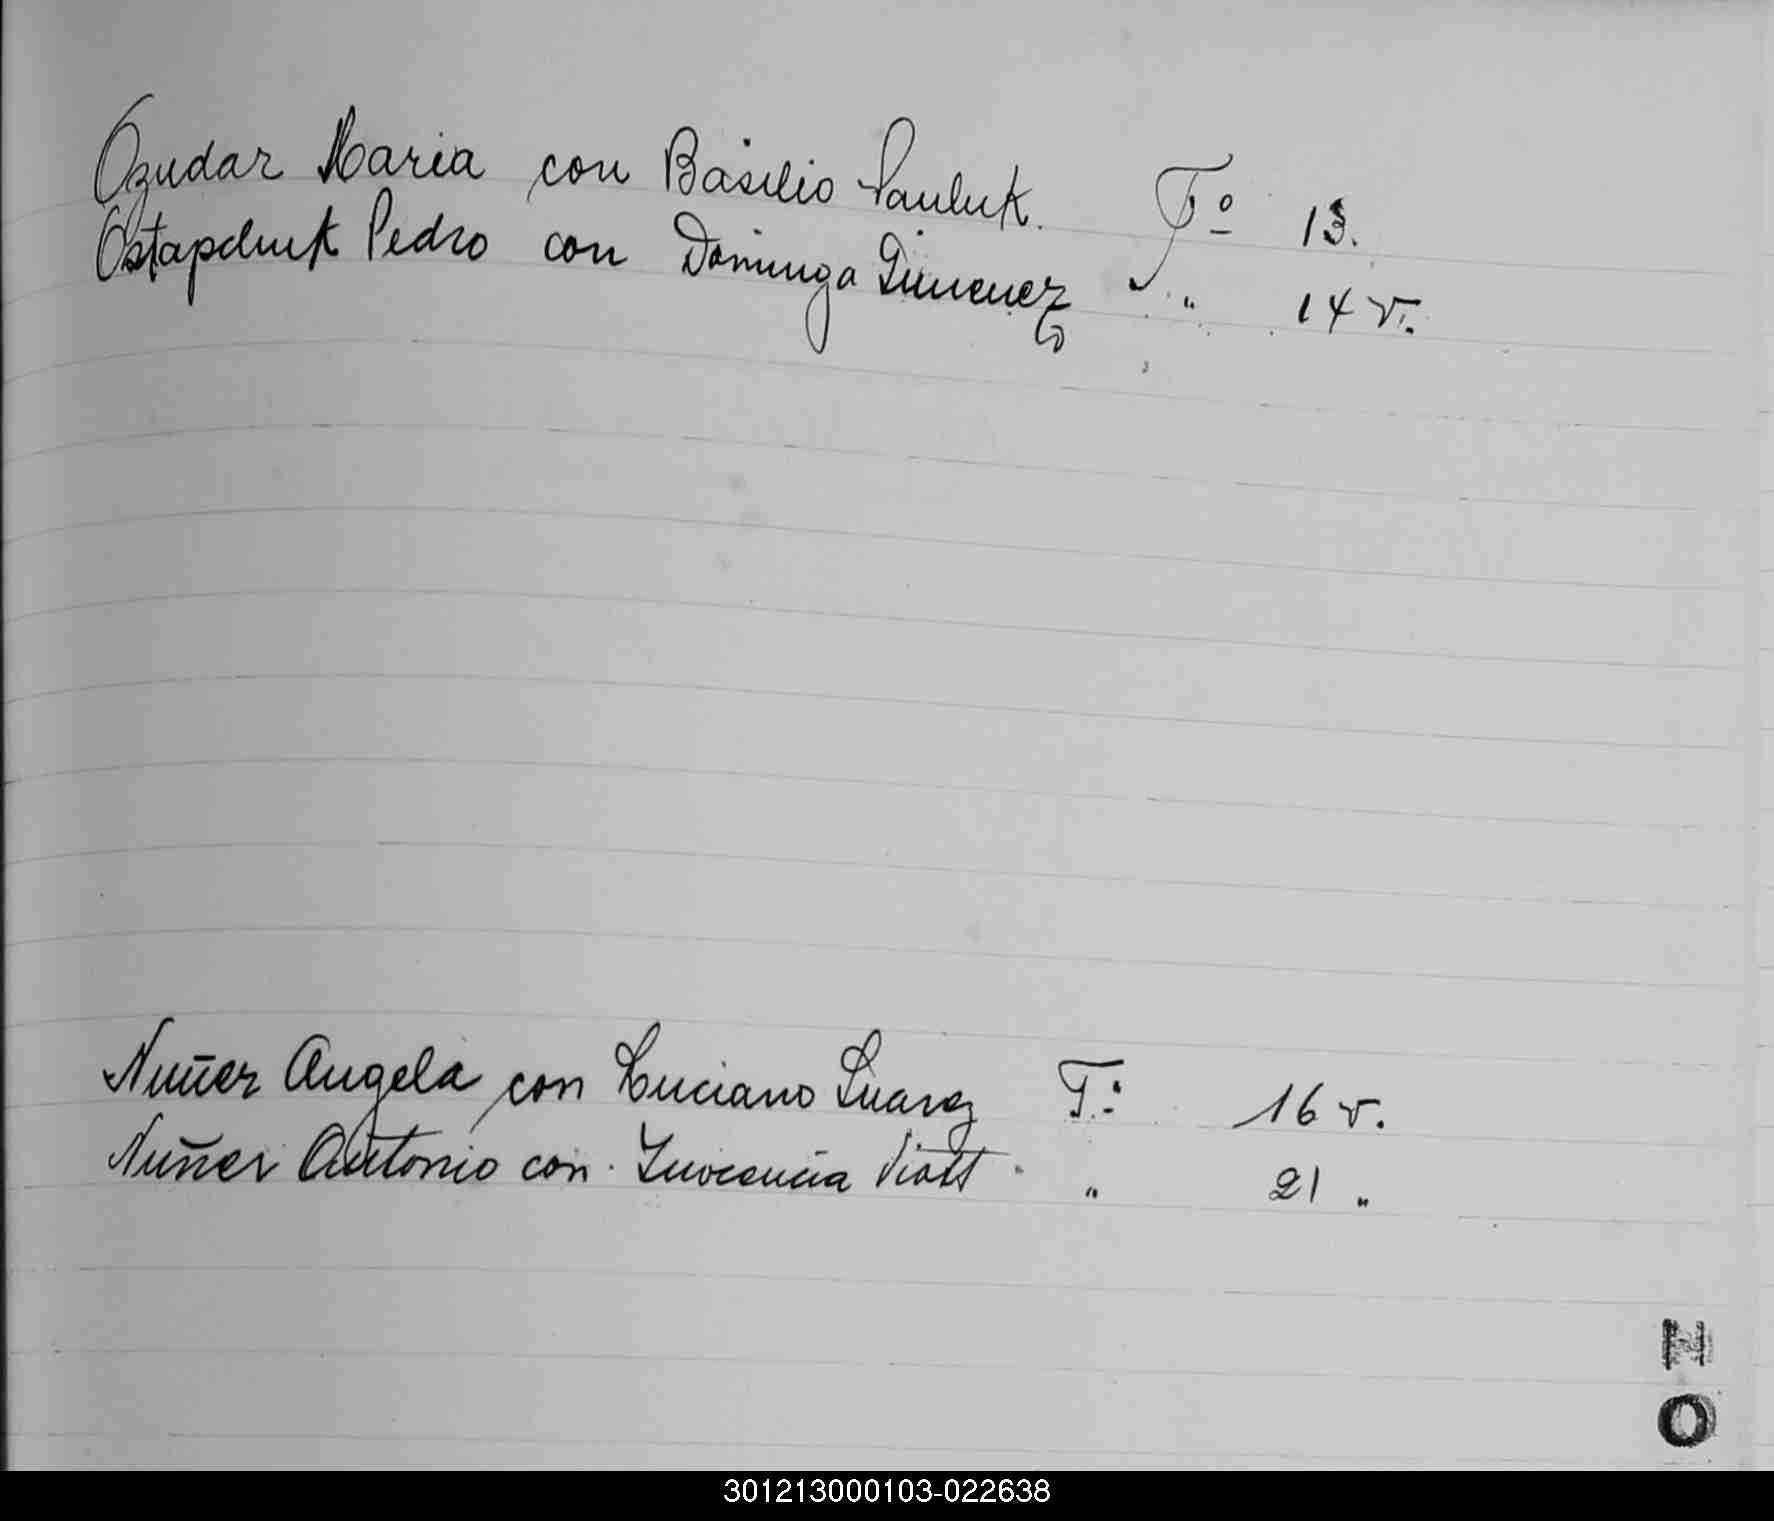 Ozudar Maria con Basilio Pauluk. Fº 13.
Ostapchuk Pedro con Dominga Gimenez " 14 v.
Nuñez Angela con Luciano Suarez Fº 16 v.
Nuñez Antonio con Inocencia Viott " 21 "
N
O
301213000103-022638